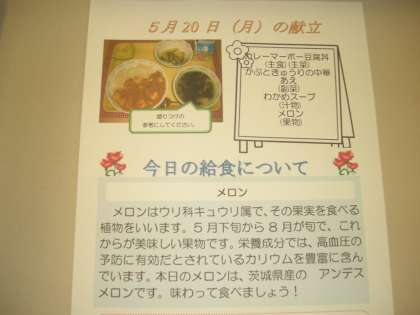 ５月２０日（月）の献立
カレーマーボー豆腐丼
（主食）（主菜）
かぶときゅうりの中華
あえ
（副菜）
わかめスープ
（汁物）
メロン
（果物）
盛りつけの
参考にしてください。
今日の給食について
メロン
メロンはウリ科キュウリ属で、その果実を食べる
植物をいいます。５月下旬から８月が旬で、これ
からが美味しい果物です。栄養成分では、高血圧の
予防に有効だとされているカリウムを豊富に含ん
でいます。本日のメロンは、茨城県産の　アンデス
メロンです。味わって食べましょう！